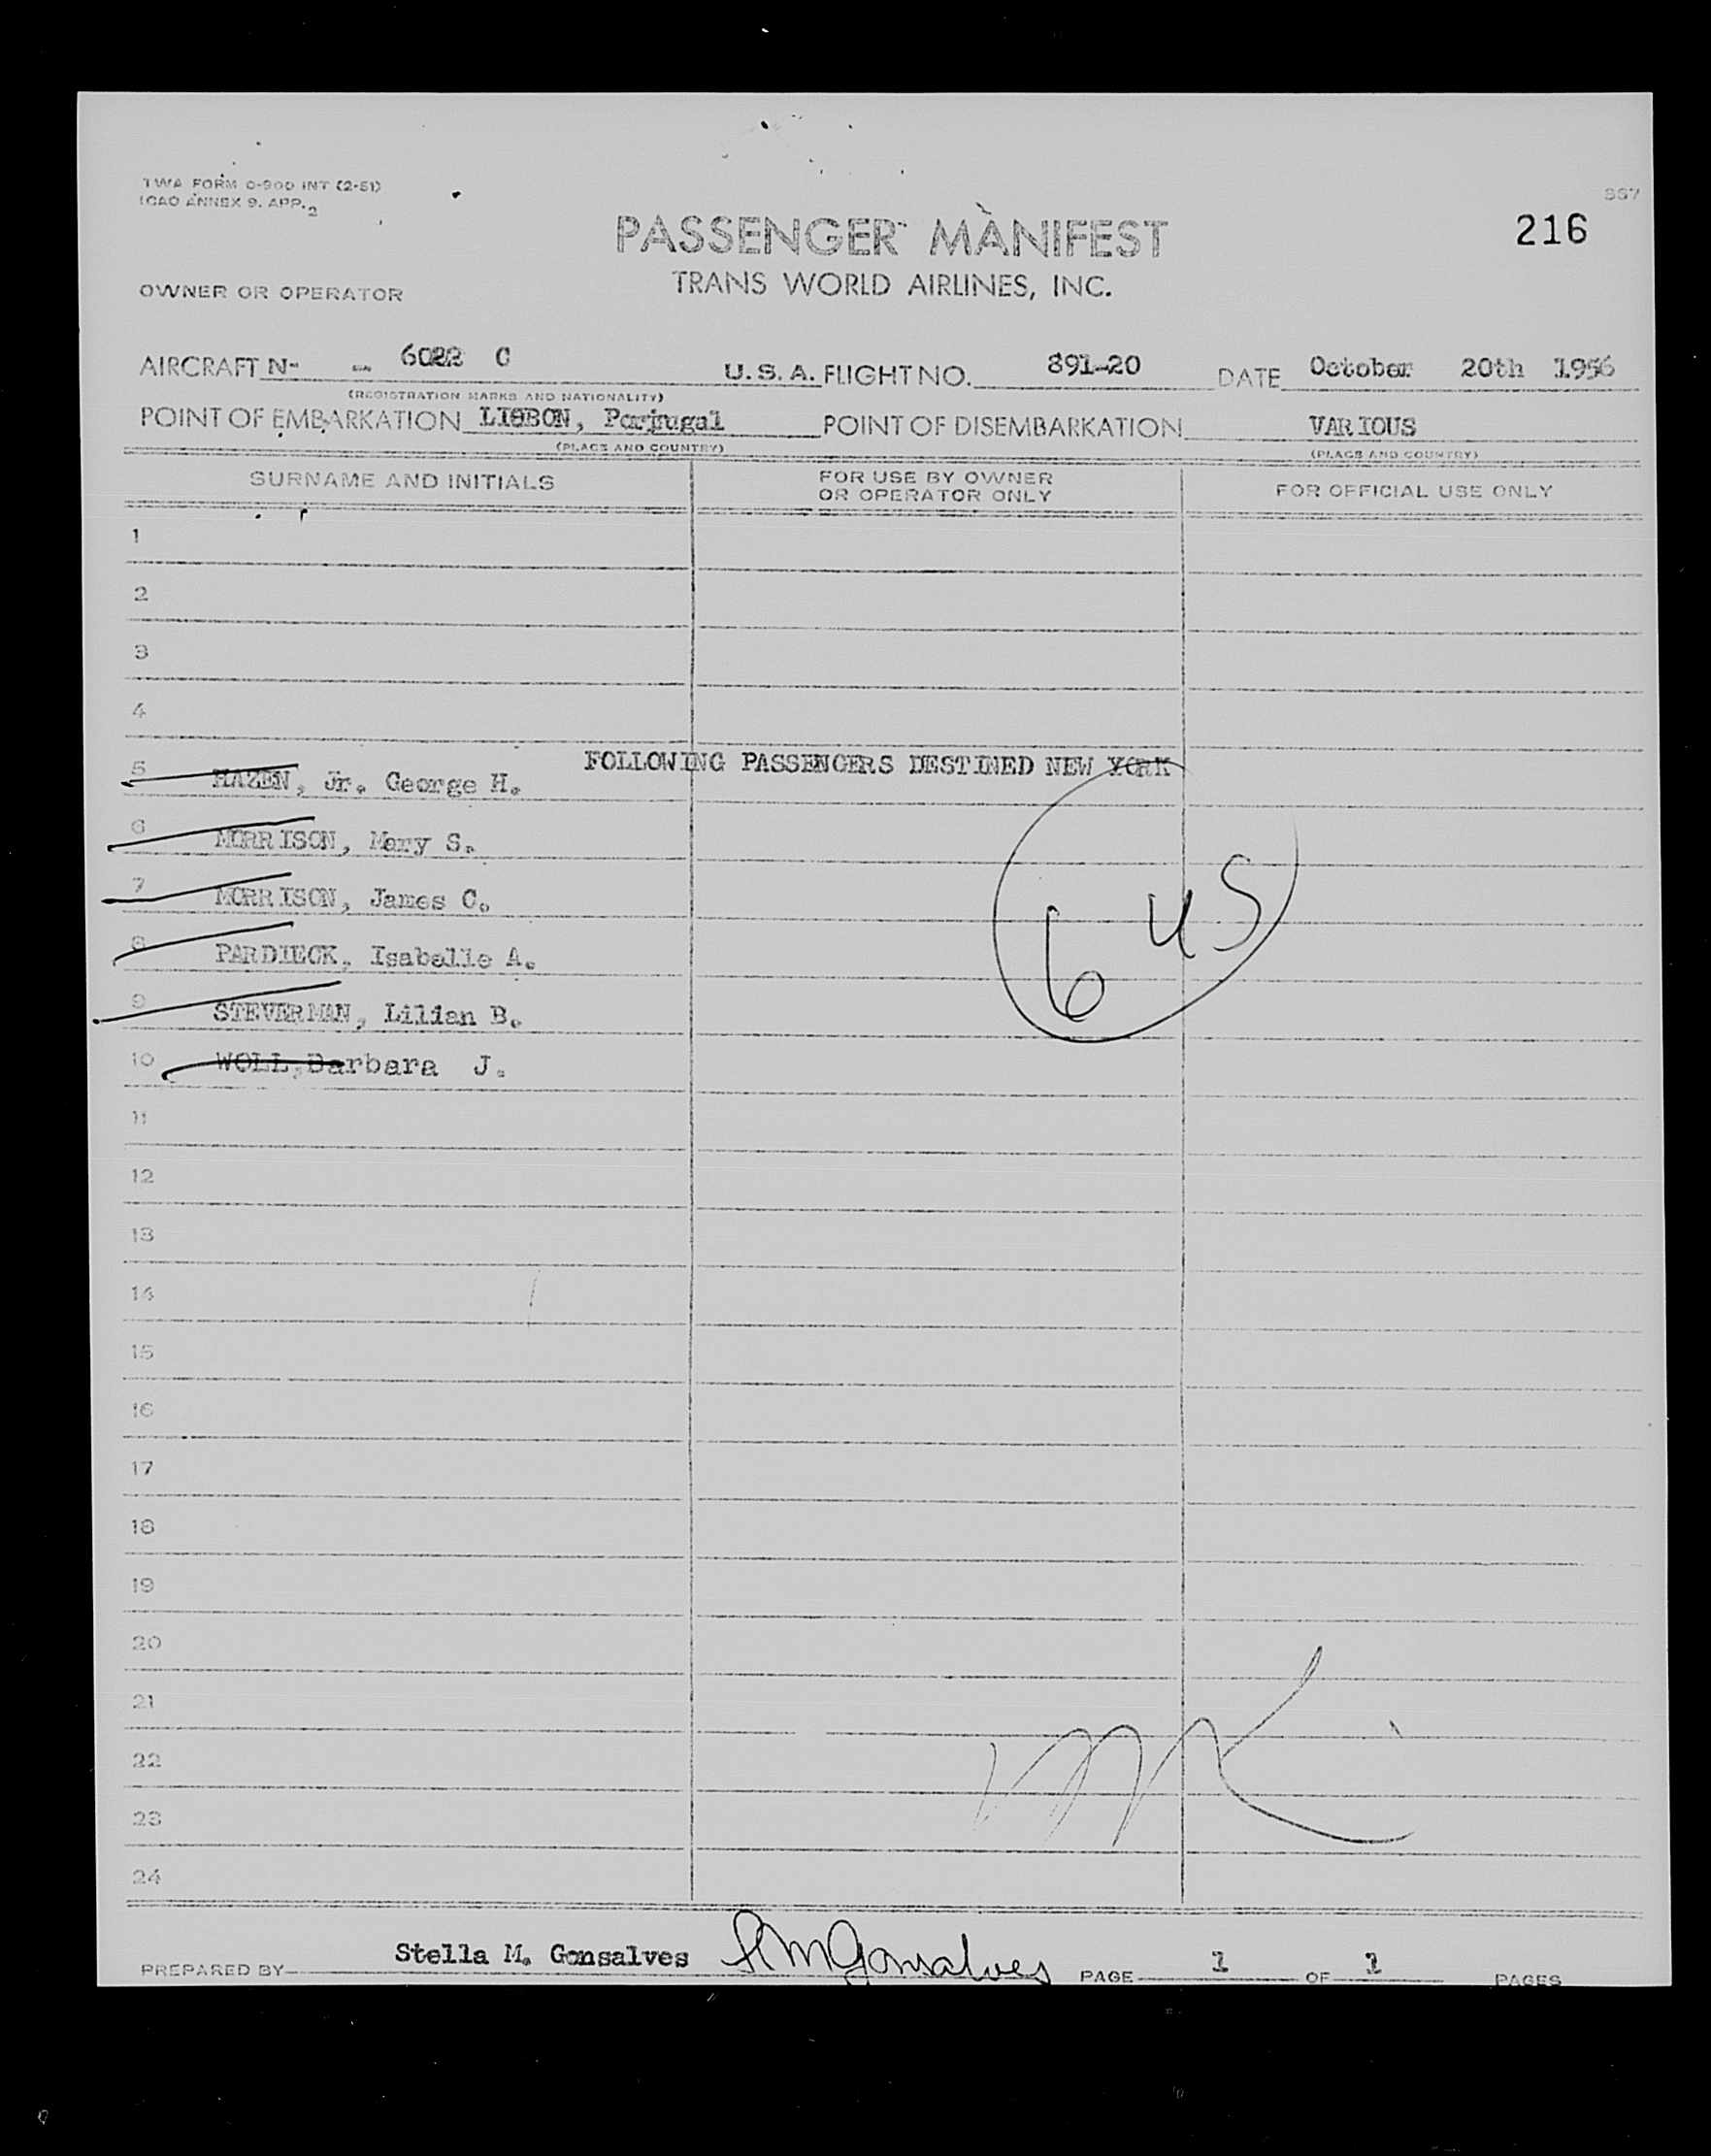 TWA FORM 0-900 INT (2-51)
ICAO ANNEX 9. APP. 2
557
216
PASSENGER MANIFEST
TRANS WORLD AIRLINES, INC.
OWNER OR OPERATOR
AIRCRAFT N- 6022 C U.S.A. FLIGHT NO. 891-20 DATE October 20th 1956
(REGISTRATION MARKS AND NATIONALITY)
POINT OF EMBARKATION LISBON, Portugal POINT OF DISEMBARKATION VARIOUS
(PLACE AND COUNTRY) (PLACE AND COUNTRY)
SURNAME AND INITIALS FOR USE BY OWNER OR OPERATOR ONLY FOR OFFICIAL USE ONLY
1
2
3
4
FOLLOWING PASSENGERS DESTINED NEW YORK
5 HAZEN, Jr. George H.
6 MORRISON, Mary S.
7 MORRISON, James C.
8 PARDIECK, Isabelle A.
9 STEVERMAN, Lilian B.
6 US
10 WOLL, Barbara J.
11
12
13
14
15
16
17
18
19
20
21
22
23
24
PREPARED BY Stella M. Gonsalves SMGonsalves PAGE 1 OF 1 PAGES